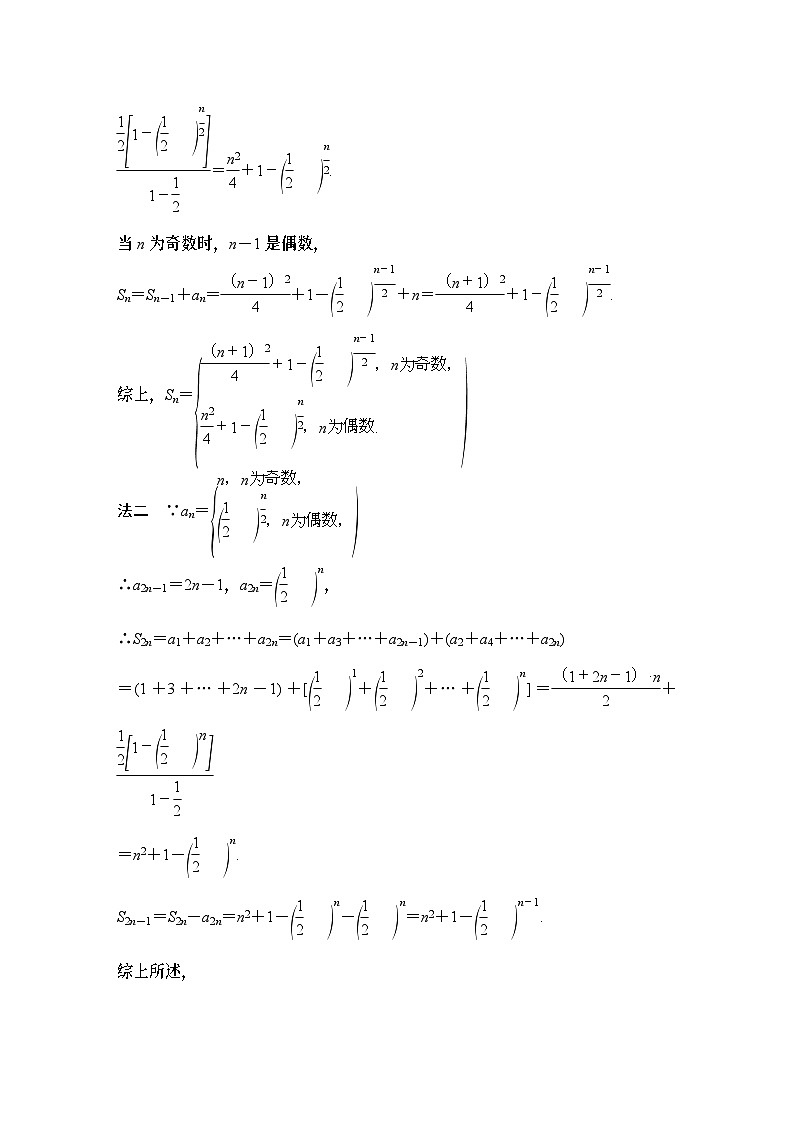 \frac{\frac{1}{2}\left[1-\left(\frac{1}{2}\right)^{\frac{n}{2}}\right]}{1-\frac{1}{2}}=\frac{n^2}{4}+1-\left(\frac{1}{2}\right)^{\frac{n}{2}}.
当 n 为奇数时，n－1 是偶数，
S_n=S_{n-1}+a_n=\frac{（n-1）^2}{4}+1-\left(\frac{1}{2}\right)^{\frac{n-1}{2}}+n=\frac{（n+1）^2}{4}+1-\left(\frac{1}{2}\right)^{\frac{n-1}{2}}.
综上，S_n=
\frac{（n+1）^2}{4}+1-\left(\frac{1}{2}\right)^{\frac{n-1}{2}}，n为奇数，
\frac{n^2}{4}+1-\left(\frac{1}{2}\right)^{\frac{n}{2}}，n为偶数.
法二　∵a_n=
n，n为奇数，
\left(\frac{1}{2}\right)^{\frac{n}{2}}，n为偶数，
∴a_{2n-1}=2n-1，a_{2n}=\left(\frac{1}{2}\right)^n，
∴S_{2n}=a_1+a_2+…+a_{2n}=(a_1+a_3+…+a_{2n-1})+(a_2+a_4+…+a_{2n})
=(1+3+…+2n-1)+[\left(\frac{1}{2}\right)^1+\left(\frac{1}{2}\right)^2+…+\left(\frac{1}{2}\right)^n]=\frac{（1+2n-1）·n}{2}+
\frac{\frac{1}{2}\left[1-\left(\frac{1}{2}\right)^n\right]}{1-\frac{1}{2}}
=n^2+1-\left(\frac{1}{2}\right)^n.
S_{2n-1}=S_{2n}-a_{2n}=n^2+1-\left(\frac{1}{2}\right)^n-\left(\frac{1}{2}\right)^n=n^2+1-\left(\frac{1}{2}\right)^{n-1}.
综上所述，